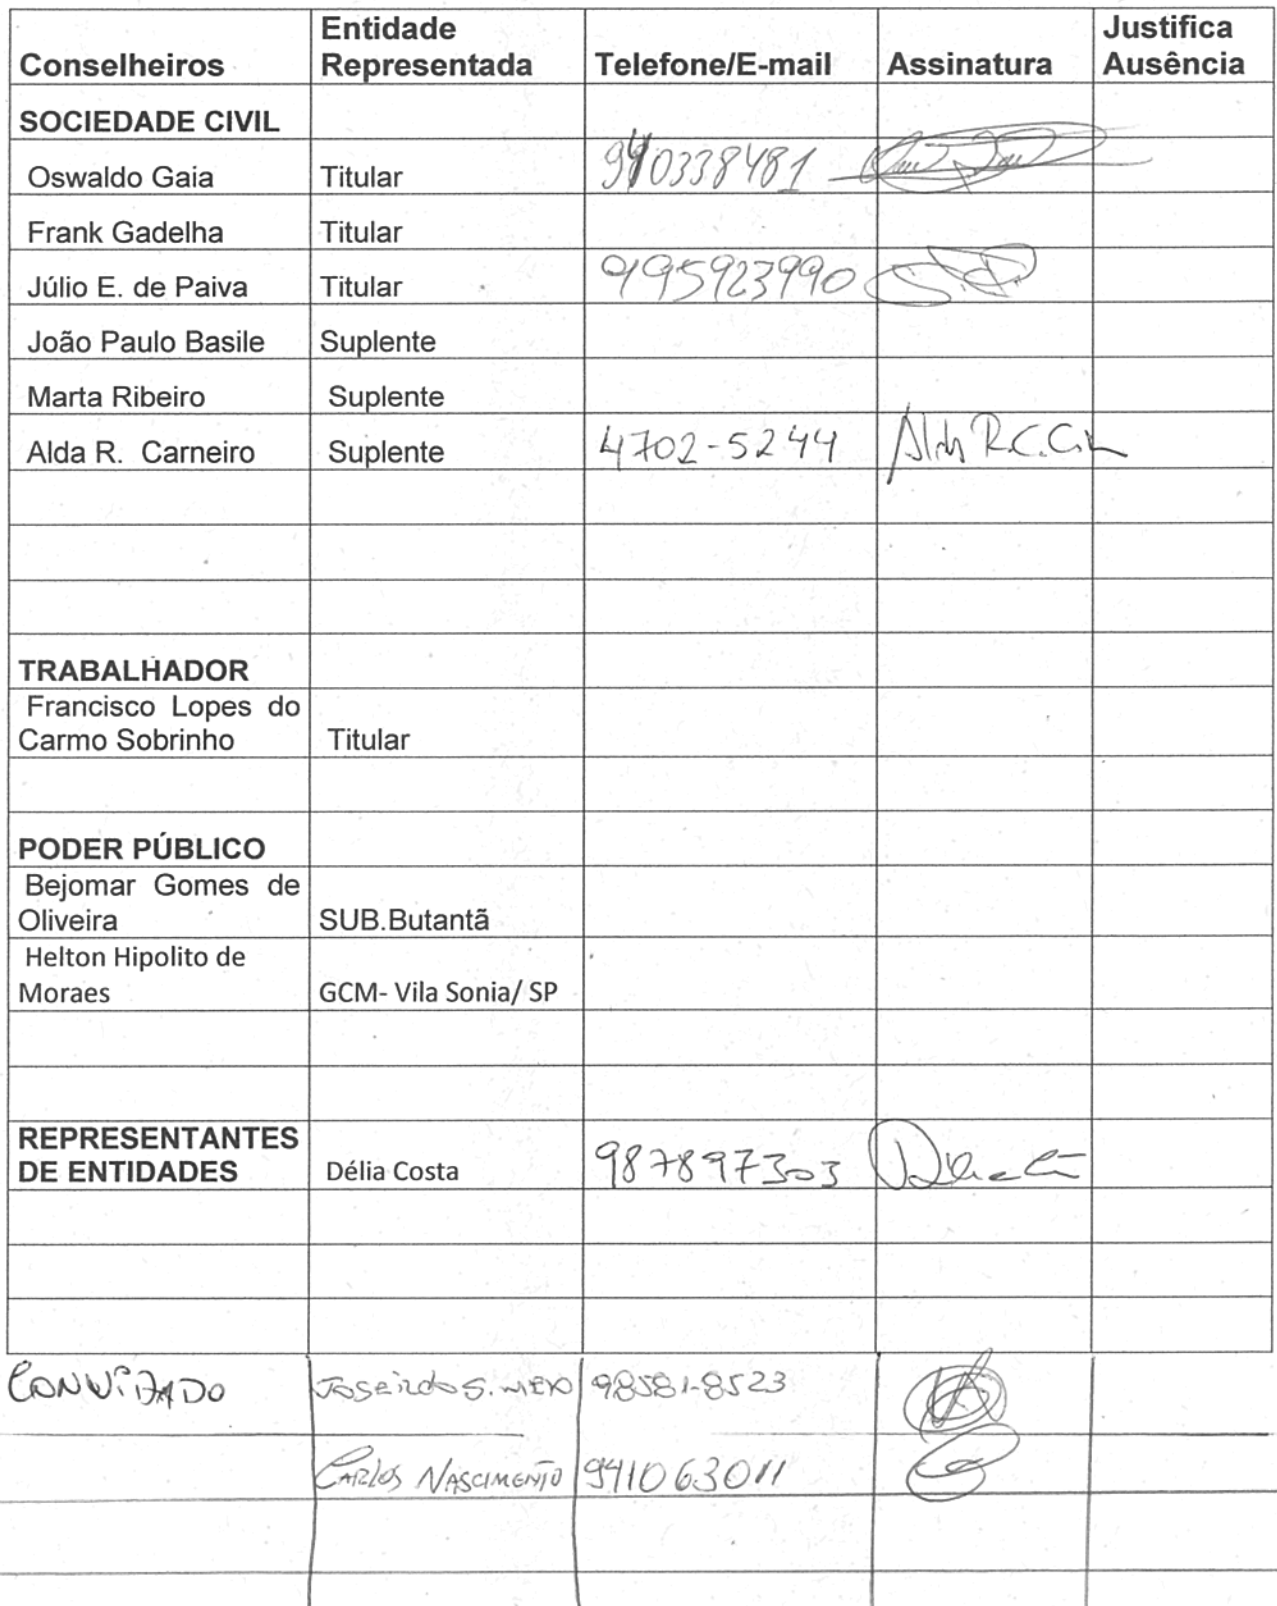 Conselheiros Entidade Representada Telefone/E-mail Assinatura Justifica Ausência
SOCIEDADE CIVIL
Oswaldo Gaia Titular 940338481
Frank Gadelha Titular
Júlio E. de Paiva Titular 995923990
João Paulo Basile Suplente
Marta Ribeiro Suplente
Alda R. Carneiro Suplente 4702-5244 Alda R.C.
TRABALHADOR
Francisco Lopes do
Carmo Sobrinho Titular
PODER PÚBLICO
Bejomar Gomes de
Oliveira SUB.Butantã
Helton Hipolito de
Moraes GCM- Vila Sonia/ SP
REPRESENTANTES
DE ENTIDADES Délia Costa 987897303
CONViDADO 98581-8523
CARLOS NASCIMENTO 941063011